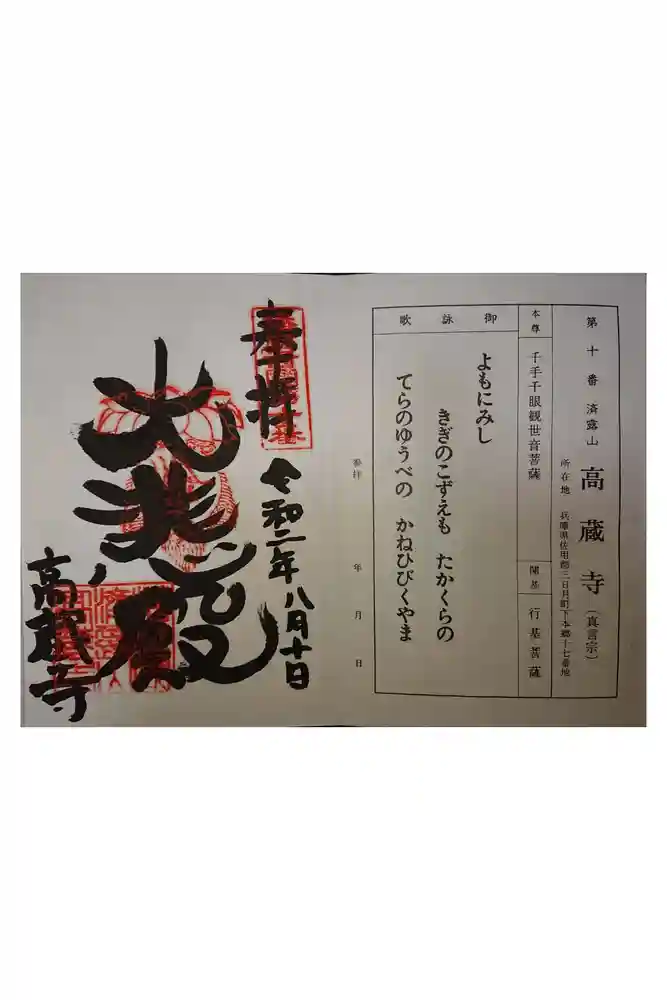 第十番 済露山 高蔵寺 (真言宗)
所在地 兵庫県佐用郡三日月町下本郷十七番地
本尊 千手千眼観世音菩薩
開基 行基菩薩
御詠歌
よもにみし
きぎのこずえも たかくらの
てらのゆうべの かねひびくやま
参拝 年 月 日
奉拝
令和二年八月十日
大悲殿
高蔵寺